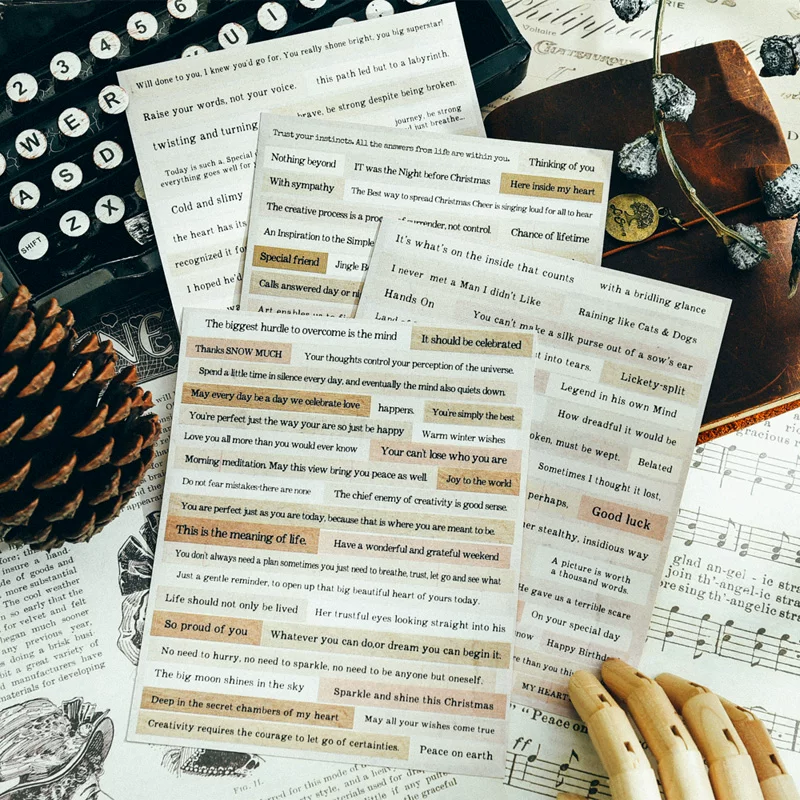 2 3 4 5 6
W E R U I
A S D
SHIFT Z X
Will done to you, I knew you'd go for. You really shone bright, you big superstar!
this path led but to a labyrinth.
Raise your words, not your voice.
brave, be strong despite being broken.
twisting and turning
journey, be strong
just breathe...
Today is such a. Special
everything goes well for
Cold and slimy
the heart has its
recognized it for
I hoped he'd
Trust your instincts. All the answers from life are within you.
Nothing beyond
IT was the Night before Christmas
Thinking of you
With sympathy
The Best way to spread Christmas Cheer is singing loud for all to hear
Here inside my heart
The creative process is a process of surrender, not control
Chance of lifetime
An Inspiration to the Simple
Special friend
Jingle B
Calls answered day or ni
Art enables us to fi
It's what's on the inside that counts
with a bridling glance
I never met a Man I didn't Like
Raining like Cats & Dogs
Hands On
You can't make a silk purse out of a sow's ear
Land of
st into tears.
Lickety-split
Legend in his own Mind
How dreadful it would be
oken, must be wept.
Belated
Sometimes I thought it lost,
perhaps,
Good luck
her stealthy, insidious way
A picture is worth
a thousand words.
He gave us a terrible scare
On your special day
now
Happy Birthda
re than you thi
MY HEART
The biggest hurdle to overcome is the mind
It should be celebrated
Thanks SNOW MUCH
Your thoughts control your perception of the universe.
Spend a little time in silence every day, and eventually the mind also quiets down.
May every day be a day we celebrate love
happens.
You're simply the best
You're perfect just the way your are so just be happy
Warm winter wishes
Love you all more than you would ever know
Your can't lose who you are
Morning meditation. May this view bring you peace as well.
Joy to the world
Do not fear mistakes-there are none
The chief enemy of creativity is good sense.
You are perfect just as you are today, because that is where you are meant to be.
This is the meaning of life.
Have a wonderful and grateful weekend
You don't always need a plan sometimes you just need to breathe, trust, let go and see what
Just a gentle reminder, to open up that big beautiful heart of yours today.
Life should not only be lived
Her trustful eyes looking straight into his
So proud of you
Whatever you can do,or dream you can begin it:
No need to hurry, no need to sparkle, no need to be anyone but oneself.
The big moon shines in the sky
Sparkle and shine this Christmas
Deep in the secret chambers of my heart
May all your wishes come true
Creativity requires the courage to let go of certainties.
Peace on earth
Philippeau
Voltaire
glad an-gel - ic stra
join th'-angel-ic stra
sing th'-angelic stra
" "Peace on
ff
FIG. H.